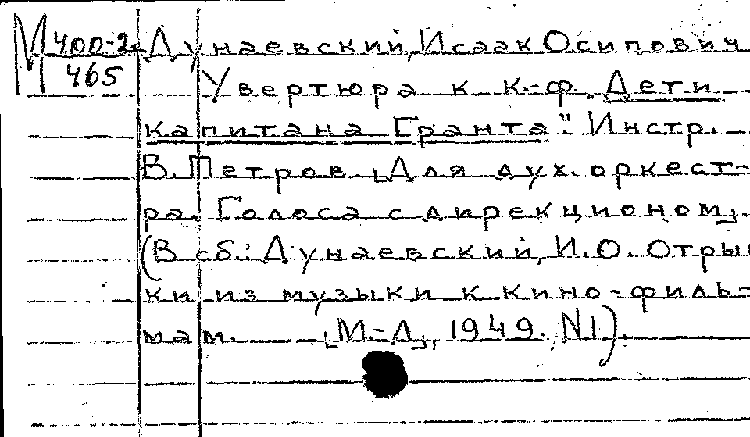 М 400-2 Дунаевский, Исаак Осипович
465 Увертюра к к.-ф. Дети
капитана Гранта". Инстр.
В. Петров. [Для дух. оркест-
ра. Голоса с дирекционом].
(В сб.: Дунаевский, И.О. Отрыв
ки из музыки к кино-филь-
мам. [М.-Л], 1949. N1).